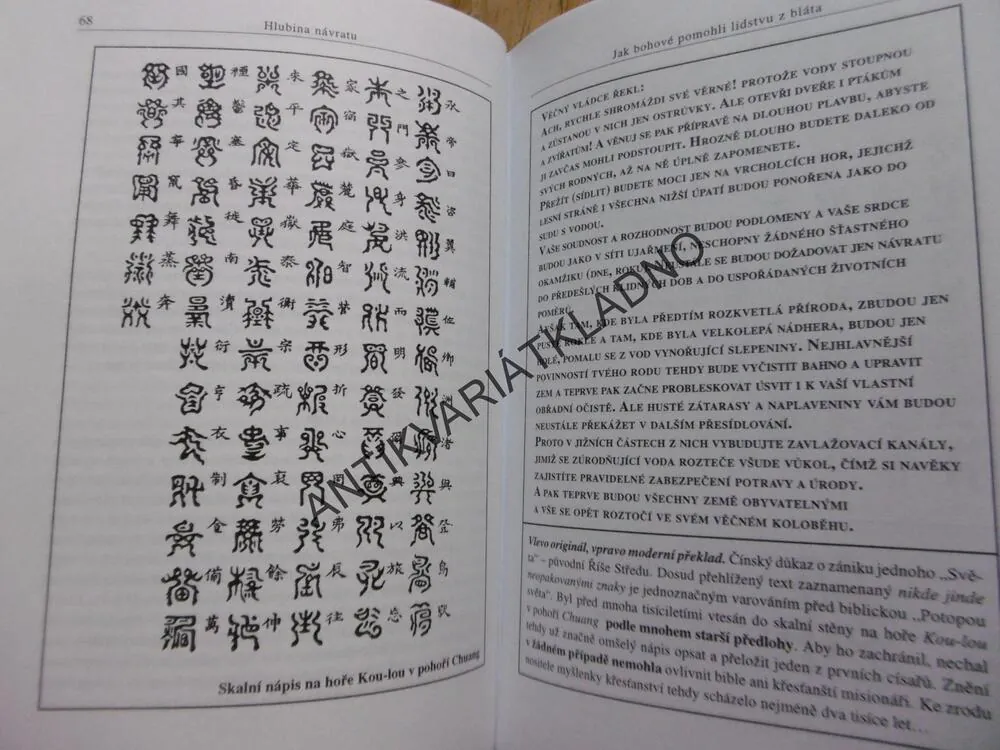 68
Hlubina návratu
承帝曰咨翼輔佐卿洲渚興登鳥獸
之門參身洪流而明發爾興以旅忘
家宿嶽麓庭智營形折心罔弗辰往
來平定華嶽泰衡宗疏事裒勞餘仲
禋鬱塞昏徙南瀆衍亨衣制食備萬
國其寧竄舞蒸奔
Skalní nápis na hoře Kou-lou v pohoří Chuang
Jak bohové pomohli lidstvu z bláta
VĚČNÝ VLÁDCE ŘEKL:
ACH, RYCHLE SHROMÁŽDI SVÉ VĚRNÉ! PROTOŽE VODY STOUPNOU
A ZŮSTANOU V NICH JEN OSTRŮVKY. ALE OTEVŘI DVEŘE I PTÁKŮM
A ZVÍŘATŮM! A VĚNUJ SE PAK PŘÍPRAVĚ NA DLOUHOU PLAVBU, ABYSTE
JI ZAVČAS MOHLI PODSTOUPIT. HROZNĚ DLOUHO BUDETE DALEKO OD
SVÝCH RODNÝCH, AŽ NA NĚ ÚPLNĚ ZAPOMENETE.
PŘEŽÍT (SÍDLIT) BUDETE MOCI JEN NA VRCHOLCÍCH HOR, JEJICHŽ
LESNÍ STRÁNĚ I VŠECHNA NIŽŠÍ ÚPATÍ BUDOU PONOŘENA JAKO DO
SUDU S VODOU.
VAŠE SOUDNOST A ROZHODNOST BUDOU PODLOMENY A VAŠE SRDCE
BUDOU JAKO V SÍTI UJAŘMENÍ, NESCHOPNY ŽÁDNÉHO ŠŤASTNÉHO
OKAMŽIKU (DNE, ROKU). NEUSTÁLE SE BUDOU DOŽADOVAT JEN NÁVRATU
DO PŘEDEŠLÝCH KLIDNÝCH DOB A DO USPOŘÁDANÝCH ŽIVOTNÍCH
POMĚRŮ.
AVŠAK TAM, KDE BYLA PŘEDTÍM ROZKVETLÁ PŘÍRODA, ZBUDOU JEN
PUSTÉ ROKLE A TAM, KDE BYLA VELKOLEPÁ NÁDHERA, BUDOU JEN
HOLÉ, POMALU SE Z VOD VYNOŘUJÍCÍ SLEPENINY. NEJHLAVNĚJŠÍ
POVINNOSTÍ TVÉHO RODU TEHDY BUDE VYČISTIT BAHNO A UPRAVIT
ZEM A TEPRVE PAK ZAČNE PROBLESKOVAT ÚSVIT I K VAŠÍ VLASTNÍ
OBŘADNÍ OČISTĚ. ALE HUSTÉ ZÁTARASY A NAPLAVENINY VÁM BUDOU
NEUSTÁLE PŘEKÁŽET V DALŠÍM PŘESÍDLOVÁNÍ.
PROTO V JIŽNÍCH ČÁSTECH Z NICH VYBUDUJTE ZAVLAŽOVACÍ KANÁLY,
JIMIŽ SE ZÚRODŇUJÍCÍ VODA ROZTEČE VŠUDE VŮKOL, ČÍMŽ SI NAVĚKY
ZAJISTÍTE PRAVIDELNÉ ZABEZPEČENÍ POTRAVY A ÚRODY.
A PAK TEPRVE BUDOU VŠECHNY ZEMĚ OBYVATELNÝMI
A VŠE SE OPĚT ROZTOČÍ VE SVÉM VĚČNÉM KOLOBĚHU.
Vlevo originál, vpravo moderní překlad. Čínský důkaz o zániku jednoho „Svě-
ta“ – původní Říše Středu. Dosud přehlížený text zaznamenaný nikde jinde
neopakovanými znaky je jednoznačným varováním před biblickou „Potopou
světa“. Byl před mnoha tisíciletími vtesán do skalní stěny na hoře Kou-lou
v pohoří Chuang podle mnohem starší předlohy. Aby ho zachránil, nechal
tehdy už značně omšelý nápis opsat a přeložit jeden z prvních císařů. Znění
v žádném případě nemohla ovlivnit bible ani křesťanští misionáři. Ke zrodu
nositele myšlenky křesťanství tehdy scházelo nejméně dva tisíce let…
ANTIKVARIÁTKLADNO